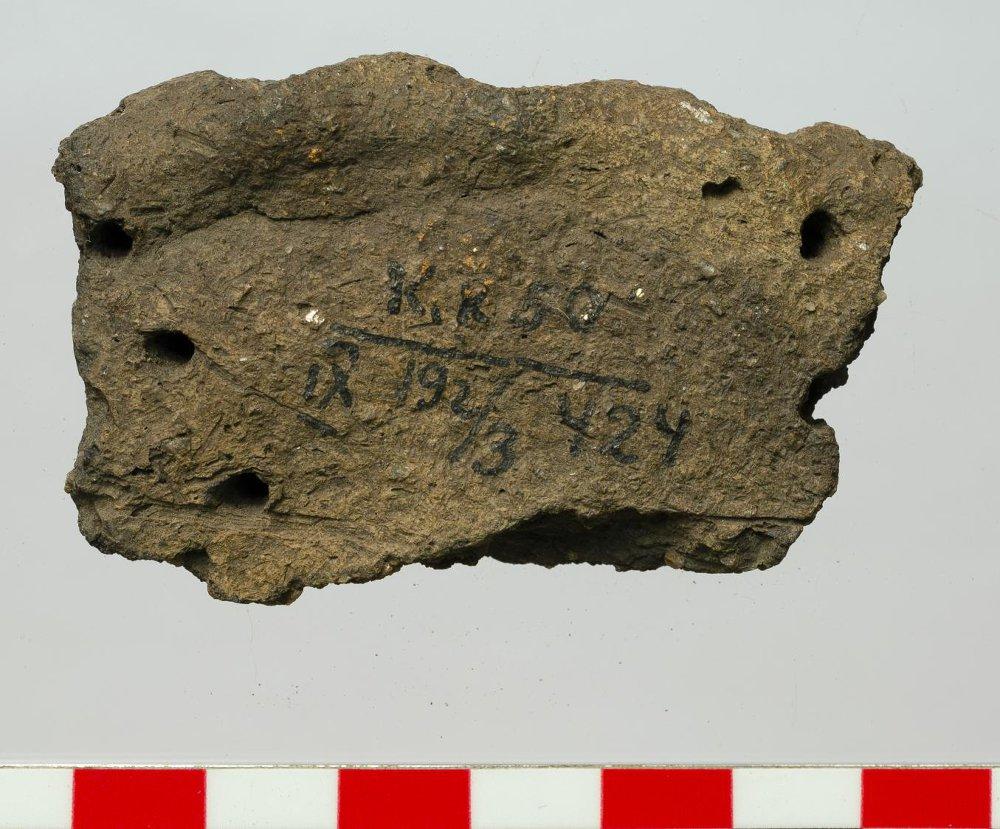 KR 50
IX 192/3 424